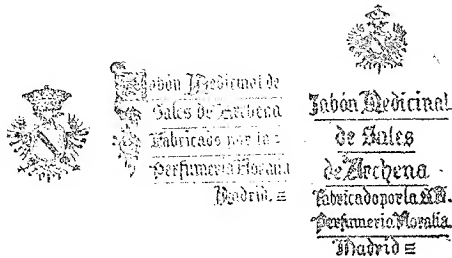 Jabón Medicinal de
Sales de Archena
Fabricado por la
Perfumeria Floralia
Madrid =
Jabón Medicinal
de Sales
de Archena
Fabricado por la
Perfumeria Floralia
Madrid =